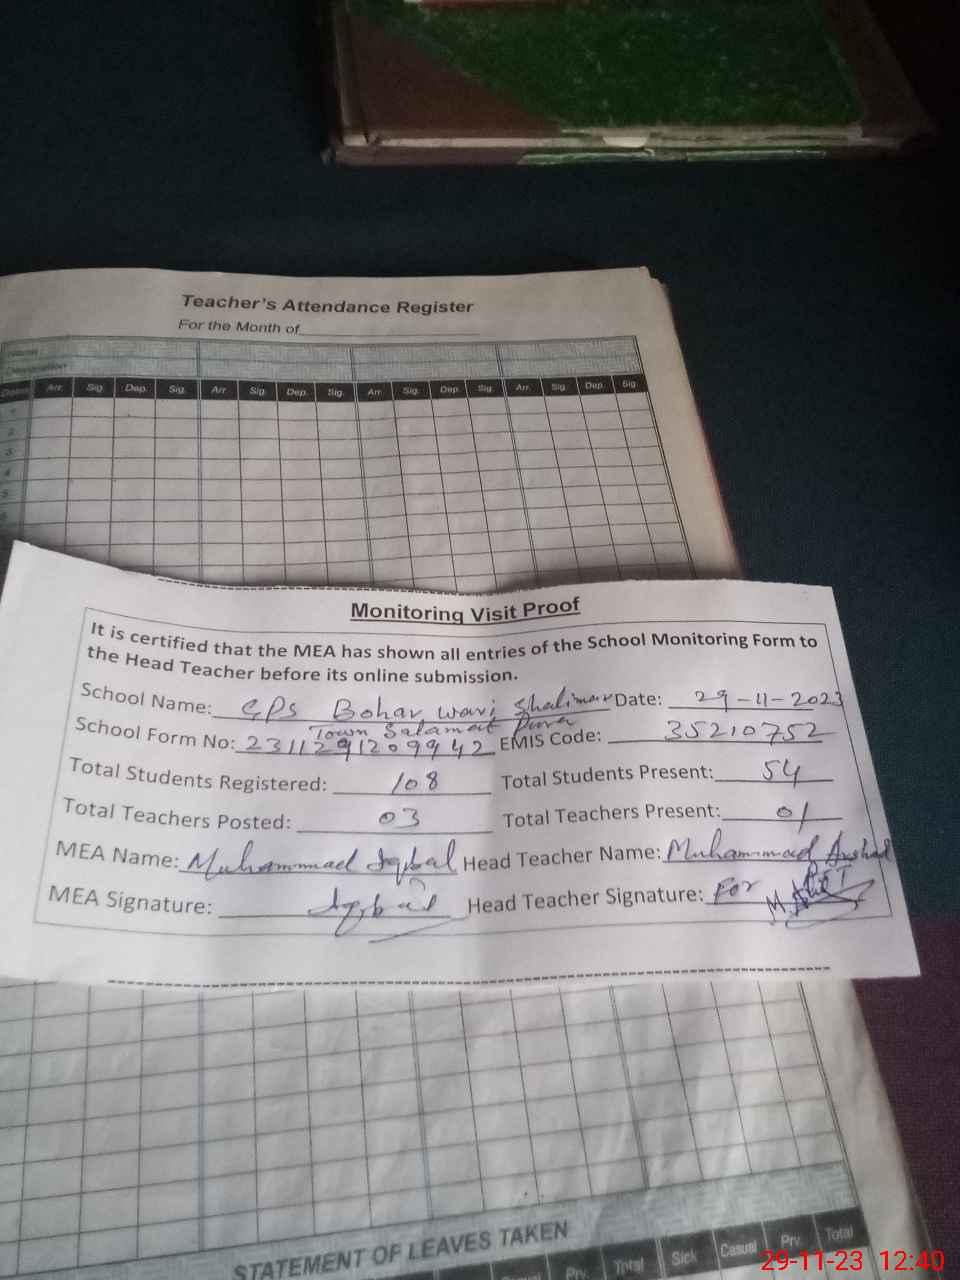 Teacher's Attendance Register
For the Month of
Arr. Sig. Dep. Sig. Arr. Sig. Dep. Sig. Arr. Sig. Dep. Sig. Arr. Sig. Dep. Sig.
2
3
4
5
Monitoring Visit Proof
It is certified that the MEA has shown all entries of the School Monitoring Form to
the Head Teacher before its online submission.
School Name: GPS Bohar wari Shalimar Date: 29-11-2023
Town Salamat Pura
School Form No: 2311291209942 EMIS Code: 35210752
Total Students Registered: 108 Total Students Present: 54
Total Teachers Posted: 03 Total Teachers Present: 01
MEA Name: Muhammad Iqbal Head Teacher Name: Muhammad Arshad
MEA Signature: Iqbal Head Teacher Signature: For
STATEMENT OF LEAVES TAKEN
Prv. Total Sick Casual Prv. Total
29-11-23 12:40